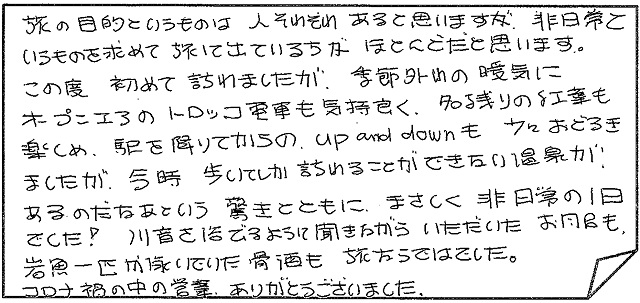 旅の目的というものは 人それぞれ あると思いますが、非日常と
いうものを求めて 旅に出ている方が ほとんどだと思います。
この度 初めて 訪れましたが、季節外れの 暖気に
オープンエアの トロッコ電車も 気持良く、名残りの紅葉も
楽しめ、駅を降りてからの、up and downも 少々おどろき
ましたが、今時 歩いてしか 訪れることができない温泉が
あるのだなあという 驚きとともに、まさしく 非日常の1日
でした! 川音を浴びるように聞きながら いただいた お食事も、
岩魚一匹が泳いでいた 骨酒も 旅ならではでした。
コロナ禍の中の営業、ありがとうございました。